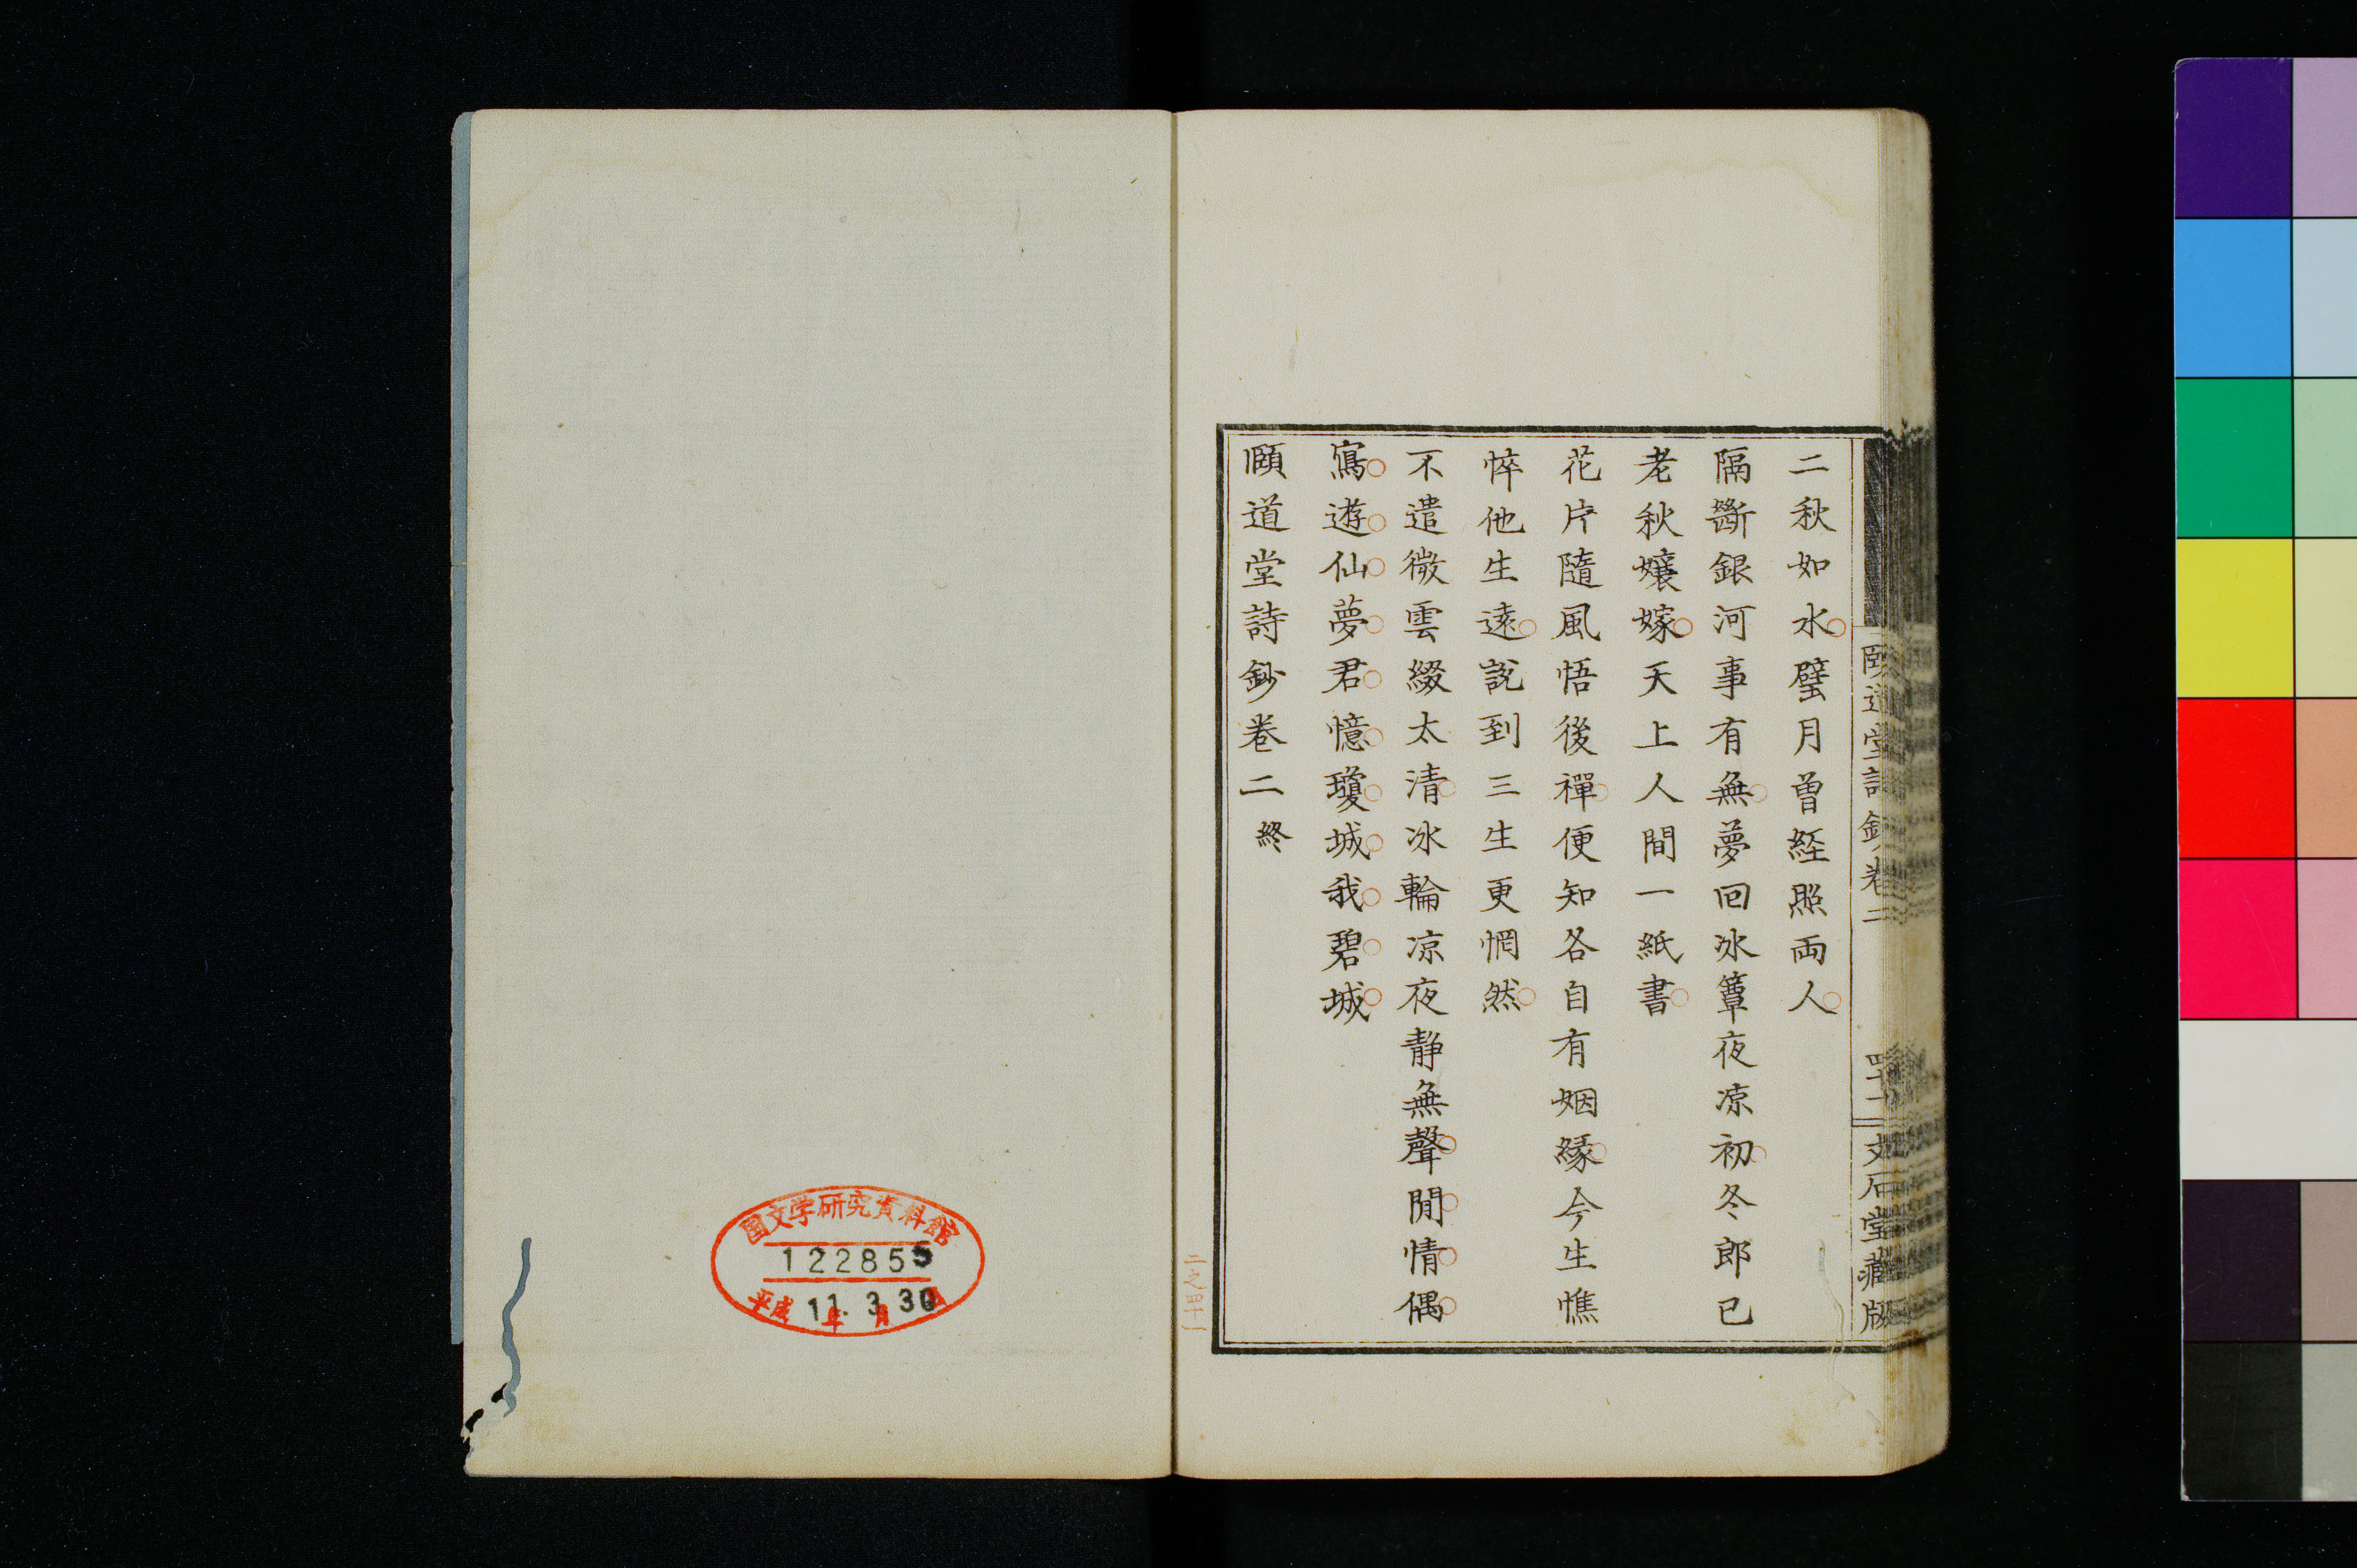 二秋如水璧月曽経照両人
隔斷銀河事有無夢回冰簟夜凉初冬郎已
老秋孃嫁天上人間一紙書
花片隨風悟後禪便知各自有姻縁今生憔
悴他生遠説到三生更惘然
不遣微雲綴太清冰輪凉夜静無聲閒情偶
寫遊仙夢君憶瓊城我碧城
頤道堂詩鈔卷二終
頤道堂詩鈔卷二
文石堂藏版
国文学研究資料館
122855
平成11年3月30日